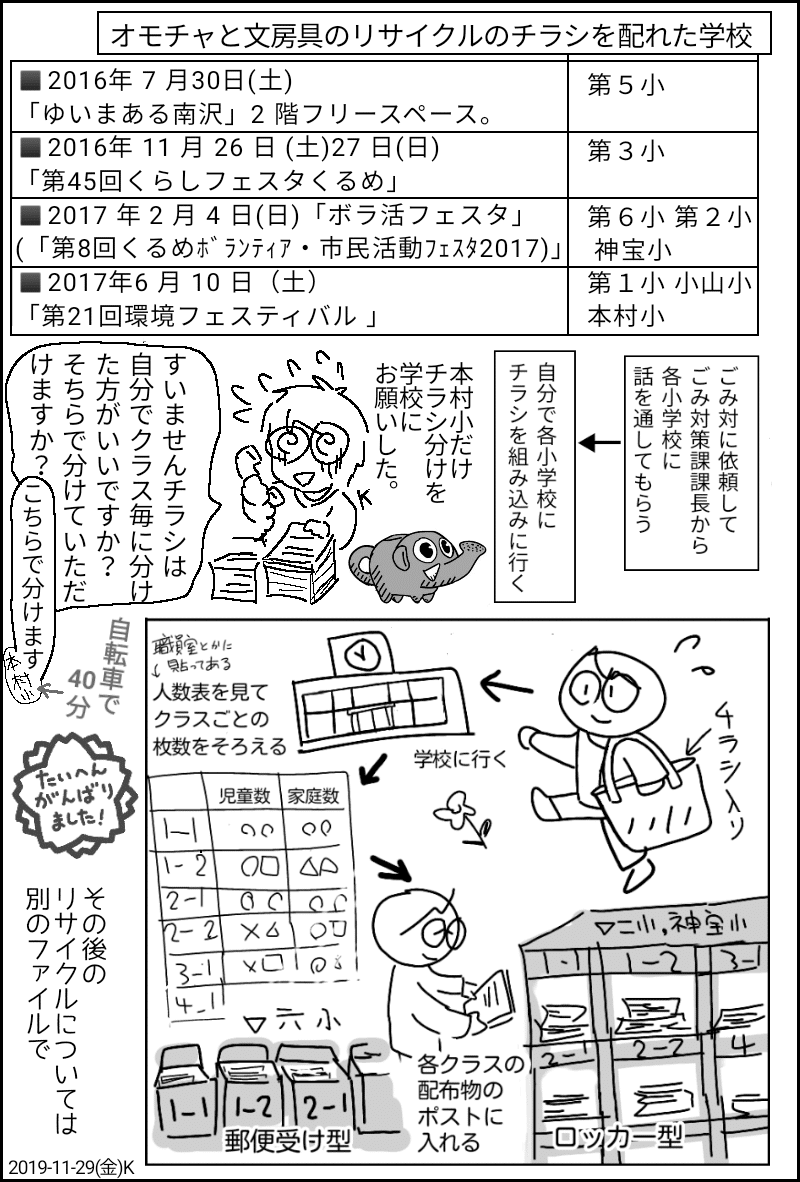 オモチャと文房具のリサイクルのチラシを配れた学校
■2016年 7 月30日(土)
「ゆいまある南沢」2 階フリースペース。
第５小
■2016年 11 月 26 日 (土)27 日(日)
「第45回くらしフェスタくるめ」
第３小
■2017 年 2 月 4 日(日)「ボラ活フェスタ」
(「第8回くるめﾎﾞﾗﾝﾃｨｱ・市民活動ﾌｪｽﾀ2017)」
第６小 第２小
神宝小
■2017年6 月 10 日（土）
「第21回環境フェスティバル 」
第１小 小山小
本村小
ごみ対に依頼して
ごみ対策課課長から
各小学校に
話を通してもらう
自分で各小学校に
チラシを組み込みに行く
本村小だけ
チラシ分けを
学校に
お願いした。
K
すいませんチラシは
自分でクラス毎に分け
た方がいいですか？
そちらで分けていただ
けますか？
こちらで分けます
本村小
自転車で
40分
たいへん
がんばり
ました!
その後の
リサイクルについては
別のファイルで
チラシ入り
学校に行く
職員室とかに
貼ってある
人数表を見て
クラスごとの
枚数をそろえる
児童数 家庭数
1-1 ○○ ○○
1-2 ○□ △△
2-1 ○○ ○○
2-2 ×△ ○□
3-1 ×□ ○○
4-1
各クラスの
配布物の
ポストに
入れる
▽六小
1-1 1-2 2-1
郵便受け型
▽二小,神宝小
1-1 1-2 3-1
2-1 2-2 4
ロッカー型
2019-11-29(金)K